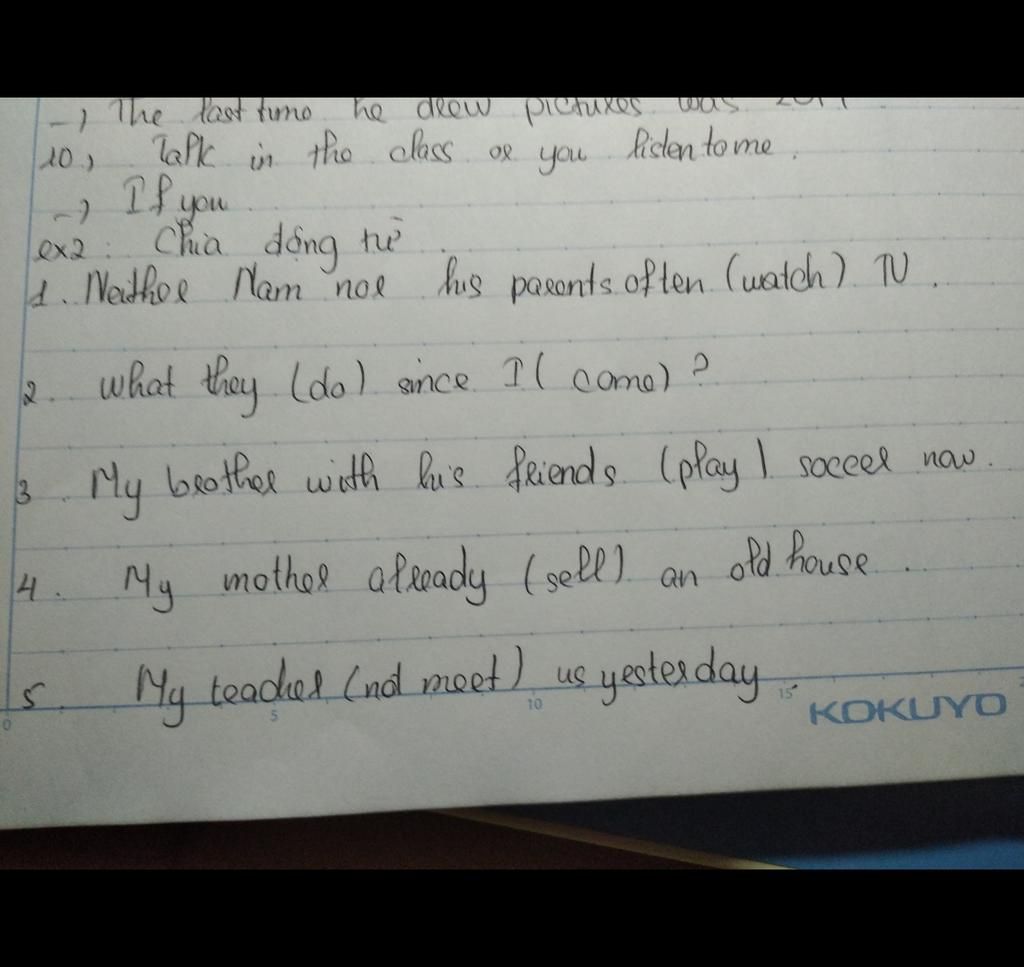 -, The last time he drew pictures was
10, Talk in the class or you listen to me.
-, If you
ex2: Chia động từ.
1. Neither Nam nor his parents often (watch) TV.
2. What they (do) since I (come)?
3. My brother with his friends (play) soccer now.
4. My mother already (sell) an old house.
5. My teacher (not meet) us yesterday.
0 5 10 15
KOKUYO